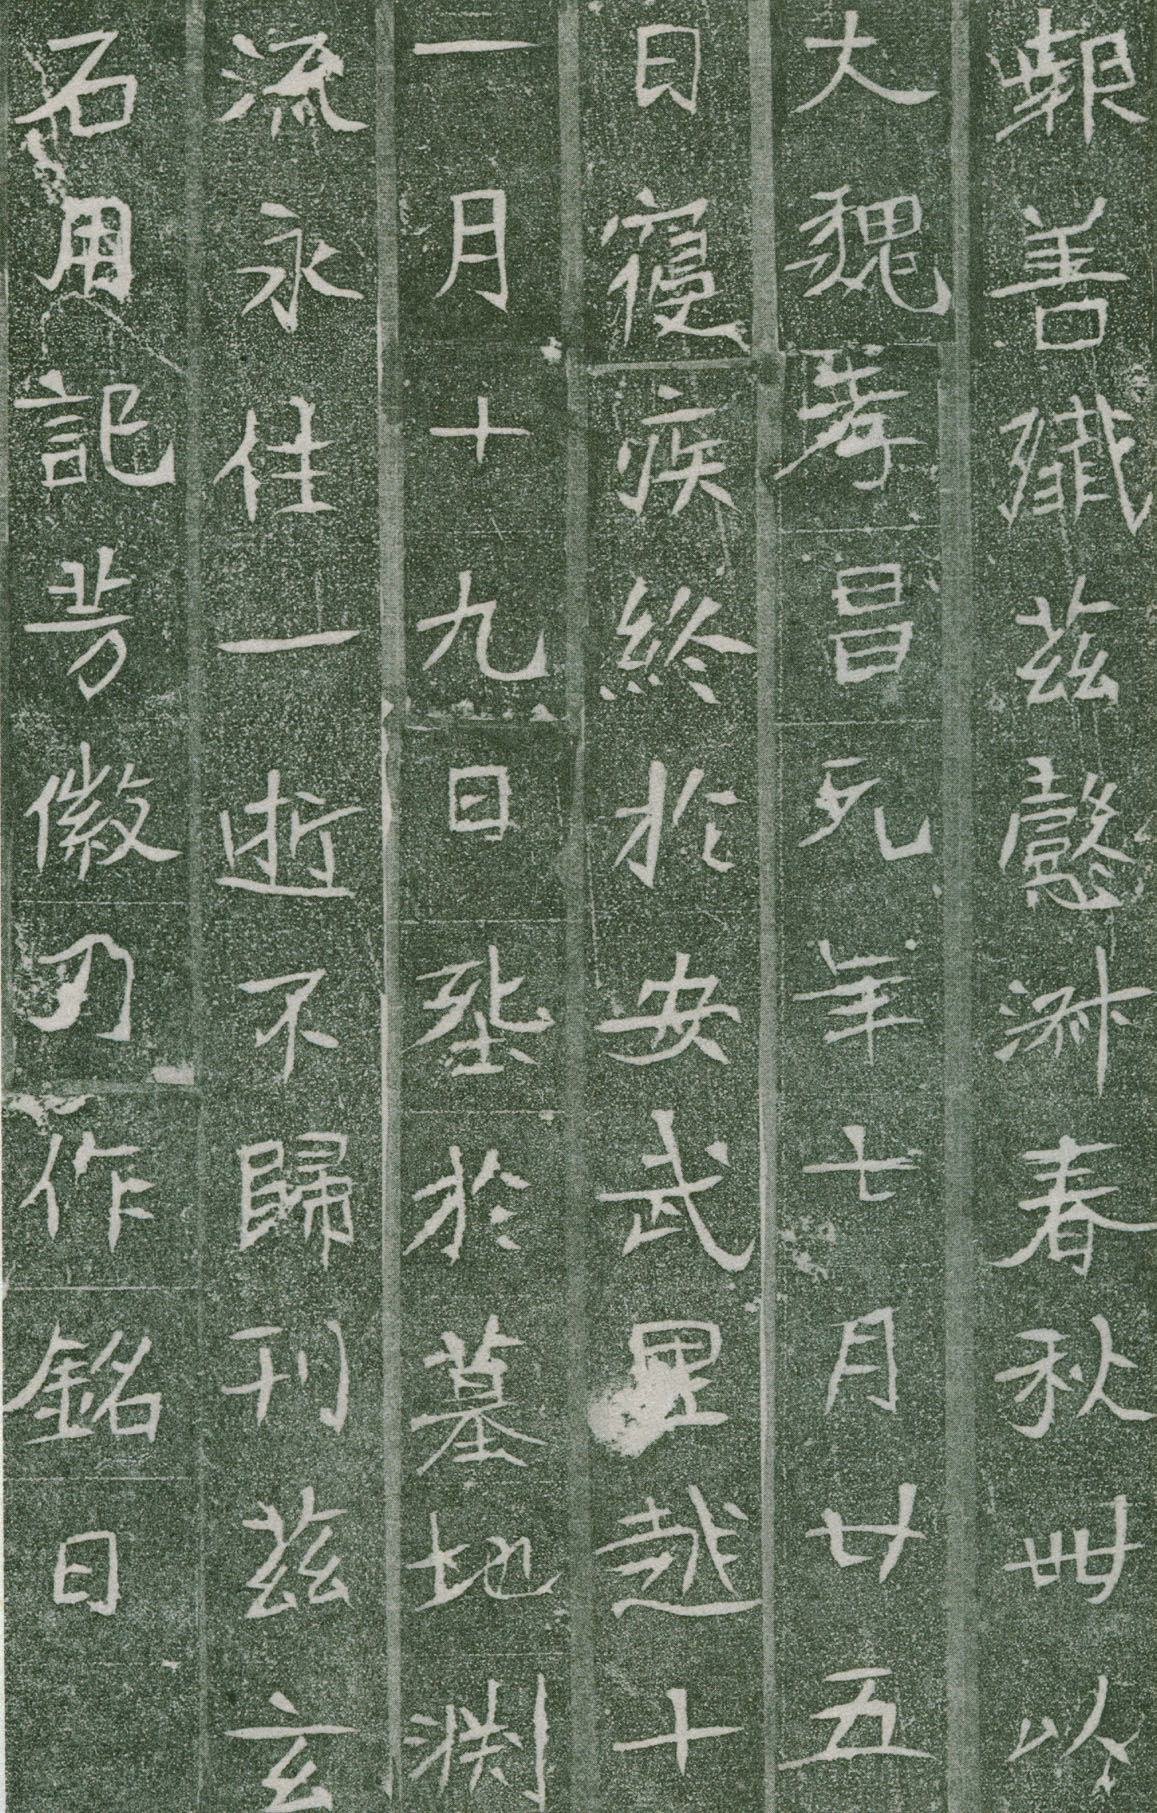 報善殲茲懿淑春秋卌以
大魏孝昌元年七月廿五
日寑疾終於安武里越十
一月十九日葬於墓地渕
流永住一逝不歸刊茲玄
石用記芳徽乃作銘曰